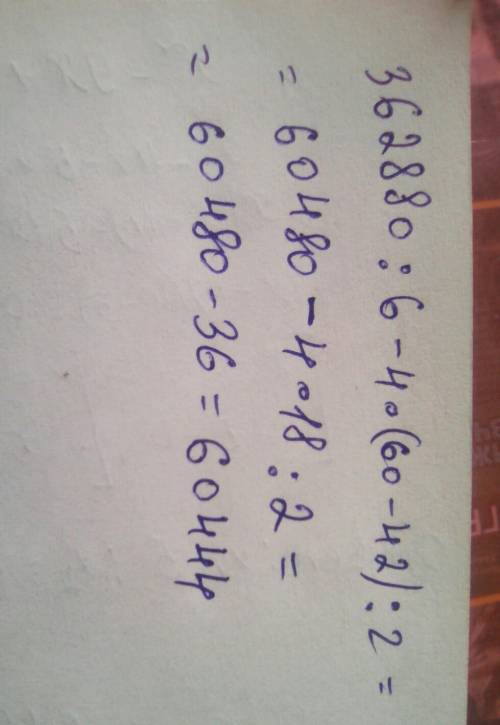 362880 : 6 - 4 • (60 - 42) : 2 =
= 60480 - 4 • 18 : 2 =
= 60480 - 36 = 60444